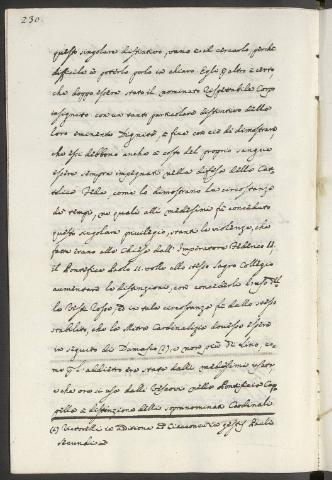 230
questo singolare distintivo, vano è il cercarlo, perchè
difficile è poterlo porlo in chiaro. Egli è altro è certo,
che doppo essere stato il nominato rispettabile Corpo
insignito con un tanto particolare distintivo della
loro eminente Dignità, e fine con ciò di dimostrare
che essi debbono anche a costo del proprio sangue
essere sempre impegnati nella difesa della Cat-
tolica Fede, come lo dimostrano le circostanze
de' tempi, ne' quali alli medesimi fù conceduto
questo singolare privilegio, stante le violenze, che
fatte erano alla Chiesa dall' Imperatore Federico II.
il Pontefice Paolo II. volle allo stesso Sagro Collegio
aumentare la distinzione, con concederle l'uso del-
le Vesti Rosse, ed in tale circostanza fù dallo stesso
stabilito, che la Mitra Cardinalizia dovesse essere
in seguito di Damasco, e non più di Lino, co-
me per l'addietro era stato dalli medesimi usato,
e che ora si usa dalli Vescovi nella Pontificia Cap-
pella a distinzione delli sopranominati Cardinali
Victorelli in additione ad Ciacconium in gestis Pauli
secundi